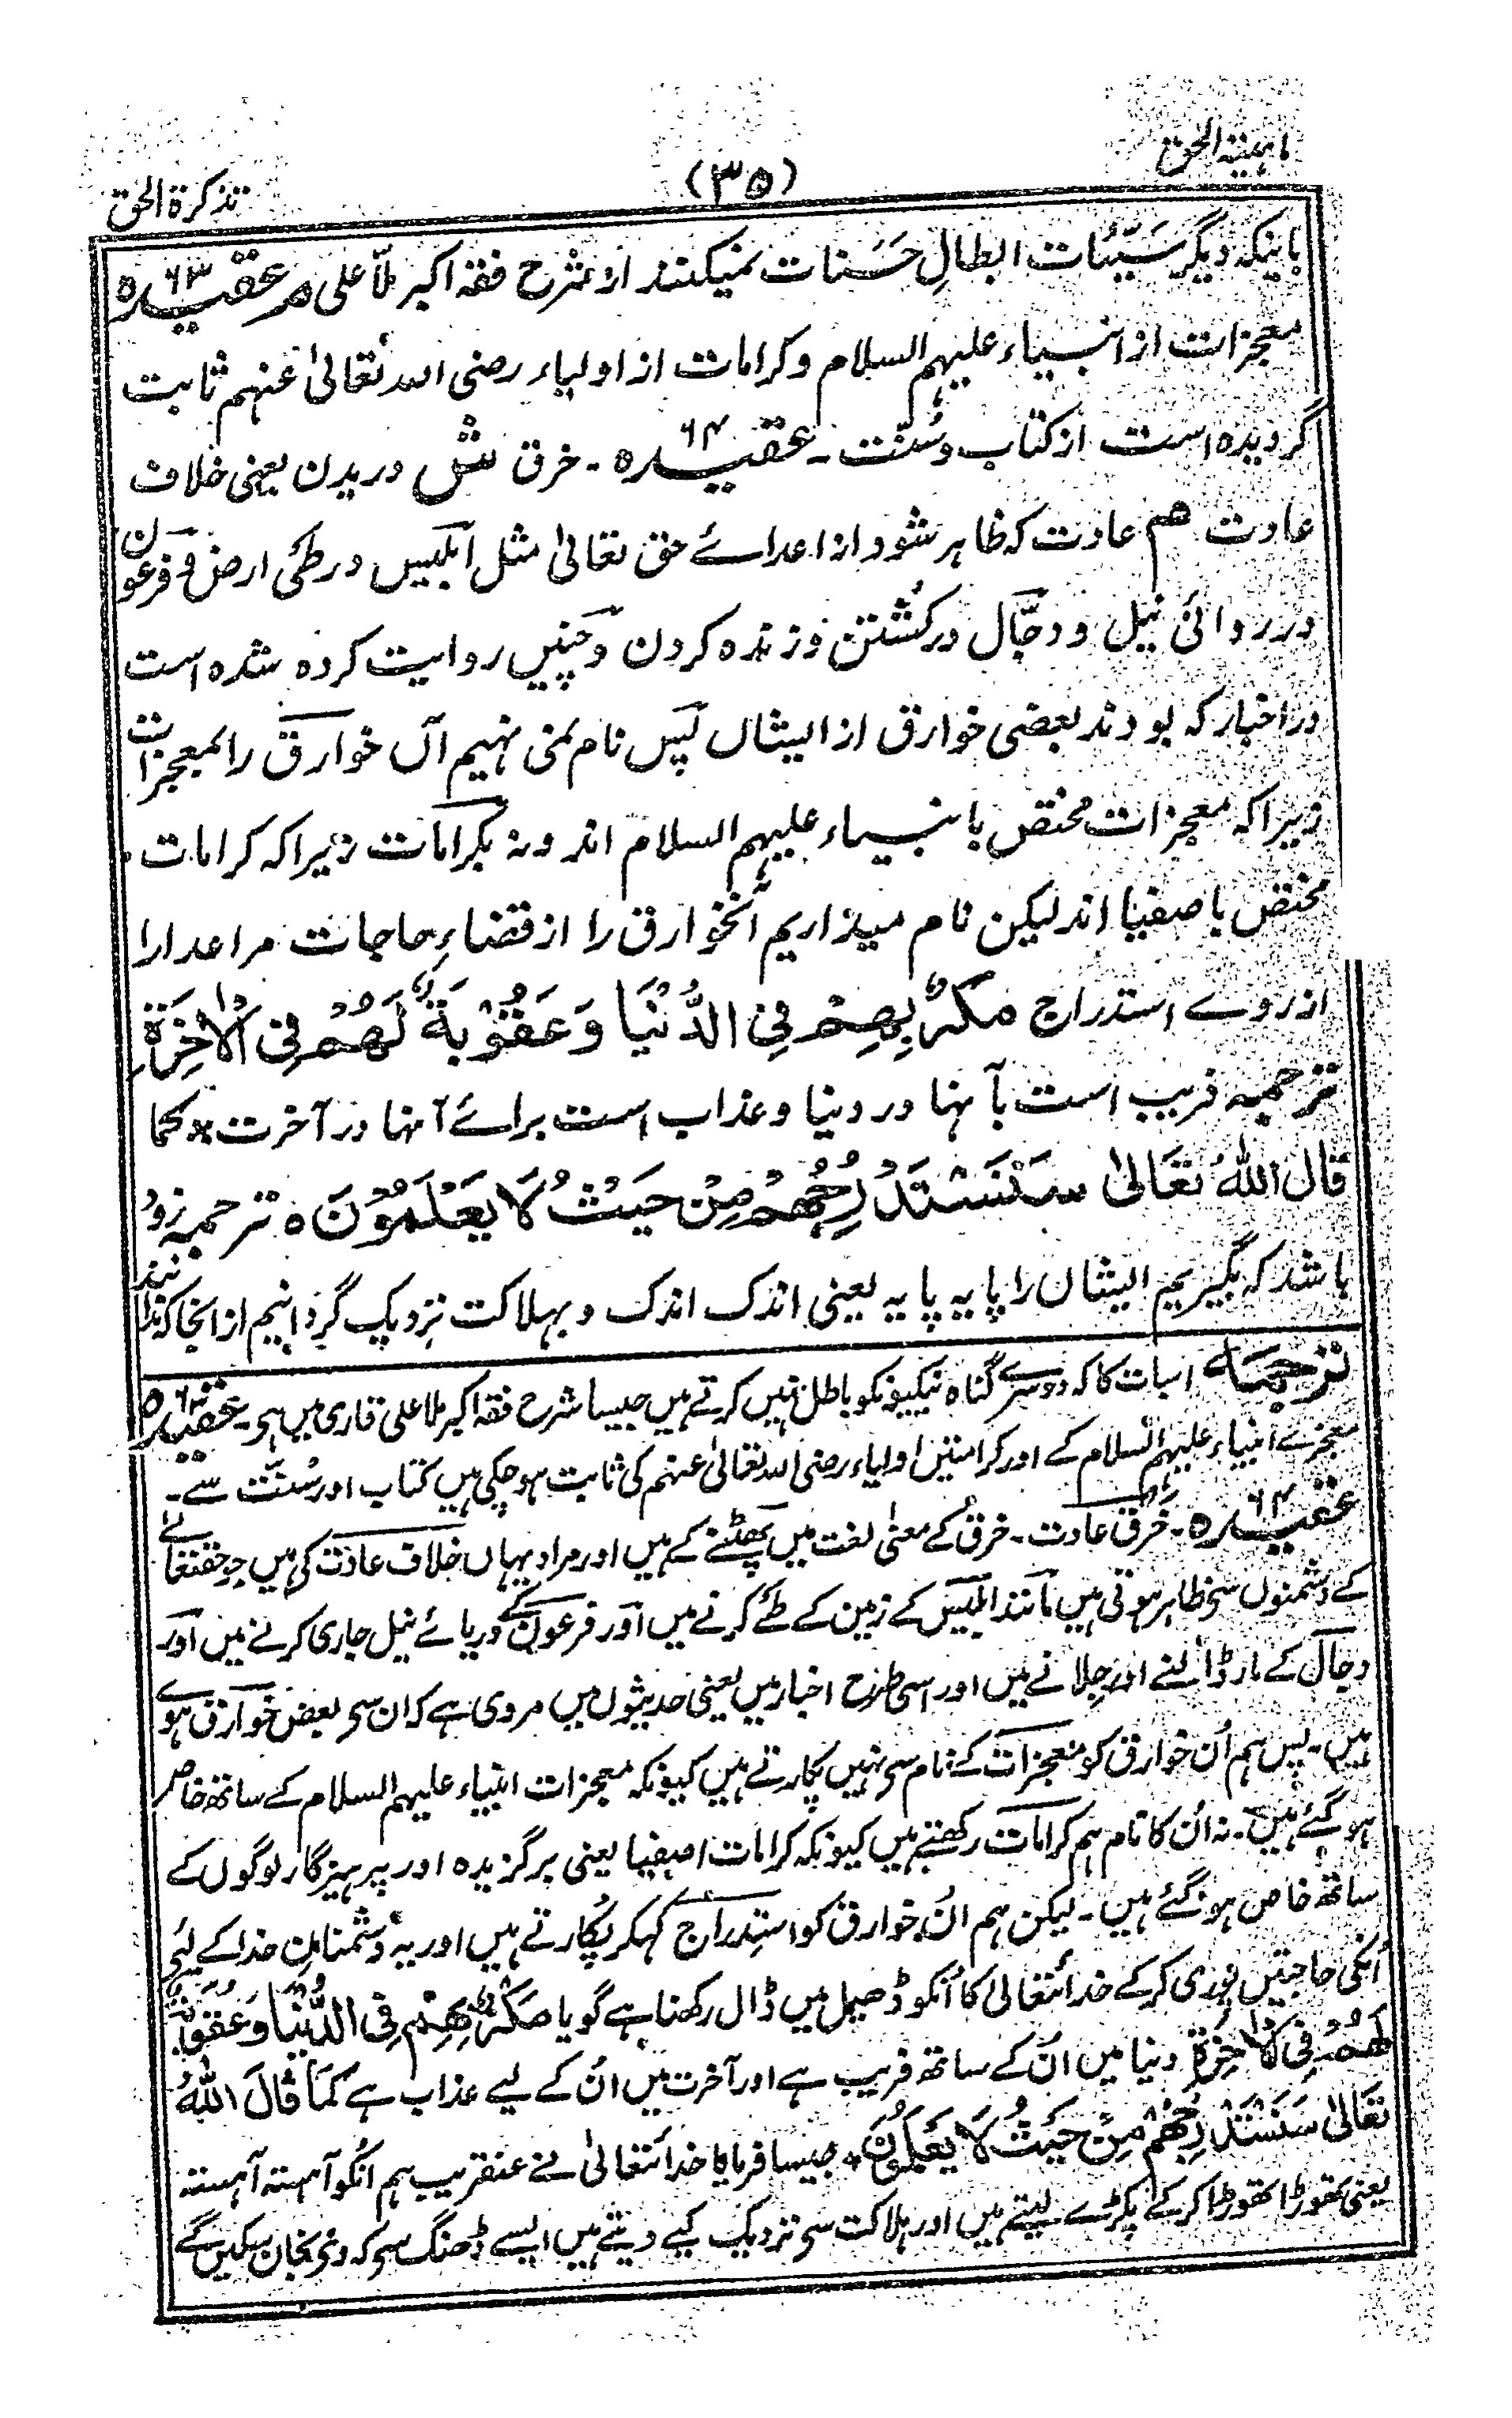 ماہیتہ الحق
(۳۵)
تذکرۃ الحق
باینکہ دیگر سَیِّئات ابطالِ حَسَنات نمیکنند از شرح فقہ اکبر ملّا علی عقیدہ ۶۳
معجزات از انبیاء علیہم السلام وکرامات از اولیاء رضی اللہ تعالیٰ عنہم ثابت
گردیدہ است از کتاب وسُنّت ۔ عقیدہ ۶۴ ۔ خرق ش دریدن یعنی خلاف
عادت هم عادت کہ ظاہر شود از اعدائے حق تعالیٰ مثل ابلیس درطیٔ ارض و فرعون
در روائی نیل و دجّال در کُشتن و زندہ کردن و چنیں روایت کردہ شدہ است
در اخبار کہ بودند بعضی خوارق از ایشاں پس نام نمی نہیم آں خوارق را بمعجزات
زیراکہ معجزات مختص بانبیاء علیہم السلام اند ونہ بکرامات زیراکہ کرامات
مختص باصفیا اند لیکن نام میداریم آنخوارق را از قضاءِ حاجات مر اعدارا
از روے استدراج مَکْرٌ بِهِمْ فِی الدُّنْیَا وَعَقُوْبَةً لَهُمْ فِی الْاٰخِرَةِ
ترجمہ فریب است بآنہا در دنیا و عذاب است برائے آنہا در آخرت * کما
قال اللهُ تَعَالیٰ سَنَسْتَدْرِجُهُمْ مِنْ حَیْثُ لَا یَعْلَمُوْنَ ٥ ترجمہ زود
باشد کہ بگیریم ایشاں را پایہ پایہ یعنی اندک اندک و بہلاکت نزدیک گردانیم از انجا کہ ندانند
ترجمہ اسبات کا کہ دوسرے گناہ نیکیونکو باطل نہیں کرتے ہیں جیسا شرح فقہ اکبر ملا علی قاری میں ہی ۔ عقیدہ ۶۳
معجزے انبیاء علیہم السلام کے اور کرامتیں اولیاء رضی اللہ تعالیٰ عنہم کی ثابت ہوچکی ہیں کتاب اور سُنّت سے ۔
عقیدہ ۶۴ ۔ خرق عادت ۔ خرق کے معنیٰ لغت میں پھٹنے کے ہیں اور مراد یہاں خلاف عادت کی ہیں جو حقتعالےٰ
کے دشمنوں سی ظاہر ہوتی ہیں مانند ابلیس کے زمین کے طئے کرنے میں اور فرعون کے دریائے نیل جاری کرنے میں اور
دجال کے مار ڈالنے اور جِلانے میں اور اسی طرح اخبار میں یعنی حدیثوں میں مروی ہے کہ ان سی بعض خوارق ہوے
ہیں ۔ پس ہم اُن خوارق کو معجزات کے نام سی نہیں پکارتے ہیں کیونکہ معجزات انبیاء علیہم السلام کے ساتھ خاص
ہوگئے ہیں ۔ نہ اُن کا نام ہم کرامات رکھتے ہیں کیونکہ کرامات اصفیا یعنی برگزیدہ اور پرہیزگار لوگوں کے
ساتھ خاص ہوگئے ہیں ۔ لیکن ہم اُن خوارق کو استدراج کہکر پُکارتے ہیں اور یہ دشمنانِ خدا کے لئے
اُنکی حاجتیں پوری کرکے خدا تعالیٰ کا اُنکو ڈھیل میں ڈال رکھنا ہے گویا مَکْرٌ بِهِمْ فِی الدُّنْیَا وَعَقُوْبَةً
لَهُمْ فِی الْاٰخِرَةِ دنیا میں اُن کے ساتھ فریب ہے اور آخرت میں اُن کے لیے عذاب ہے کَمَا قَالَ اللهُ
تَعَالیٰ سَنَسْتَدْرِجُهُمْ مِنْ حَیْثُ لَا یَعْلَمُوْنَ جیسا فرمایا خدا تعالیٰ نے عنقریب ہم انکو آہستہ آہستہ
یعنی تھوڑا تھوڑا کرکے پکڑے لیتے ہیں اور ہلاکت سی نزدیک کیے دیتے ہیں ایسے ڈھنگ سی کہ وہ نجان سکیں گے